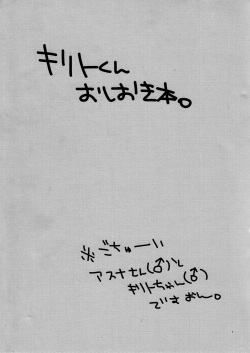 キリトくん
おしおき本。
※ごちゅーい
アスナさん(♂)と
キリトちゃん(♂)
でさぁー。